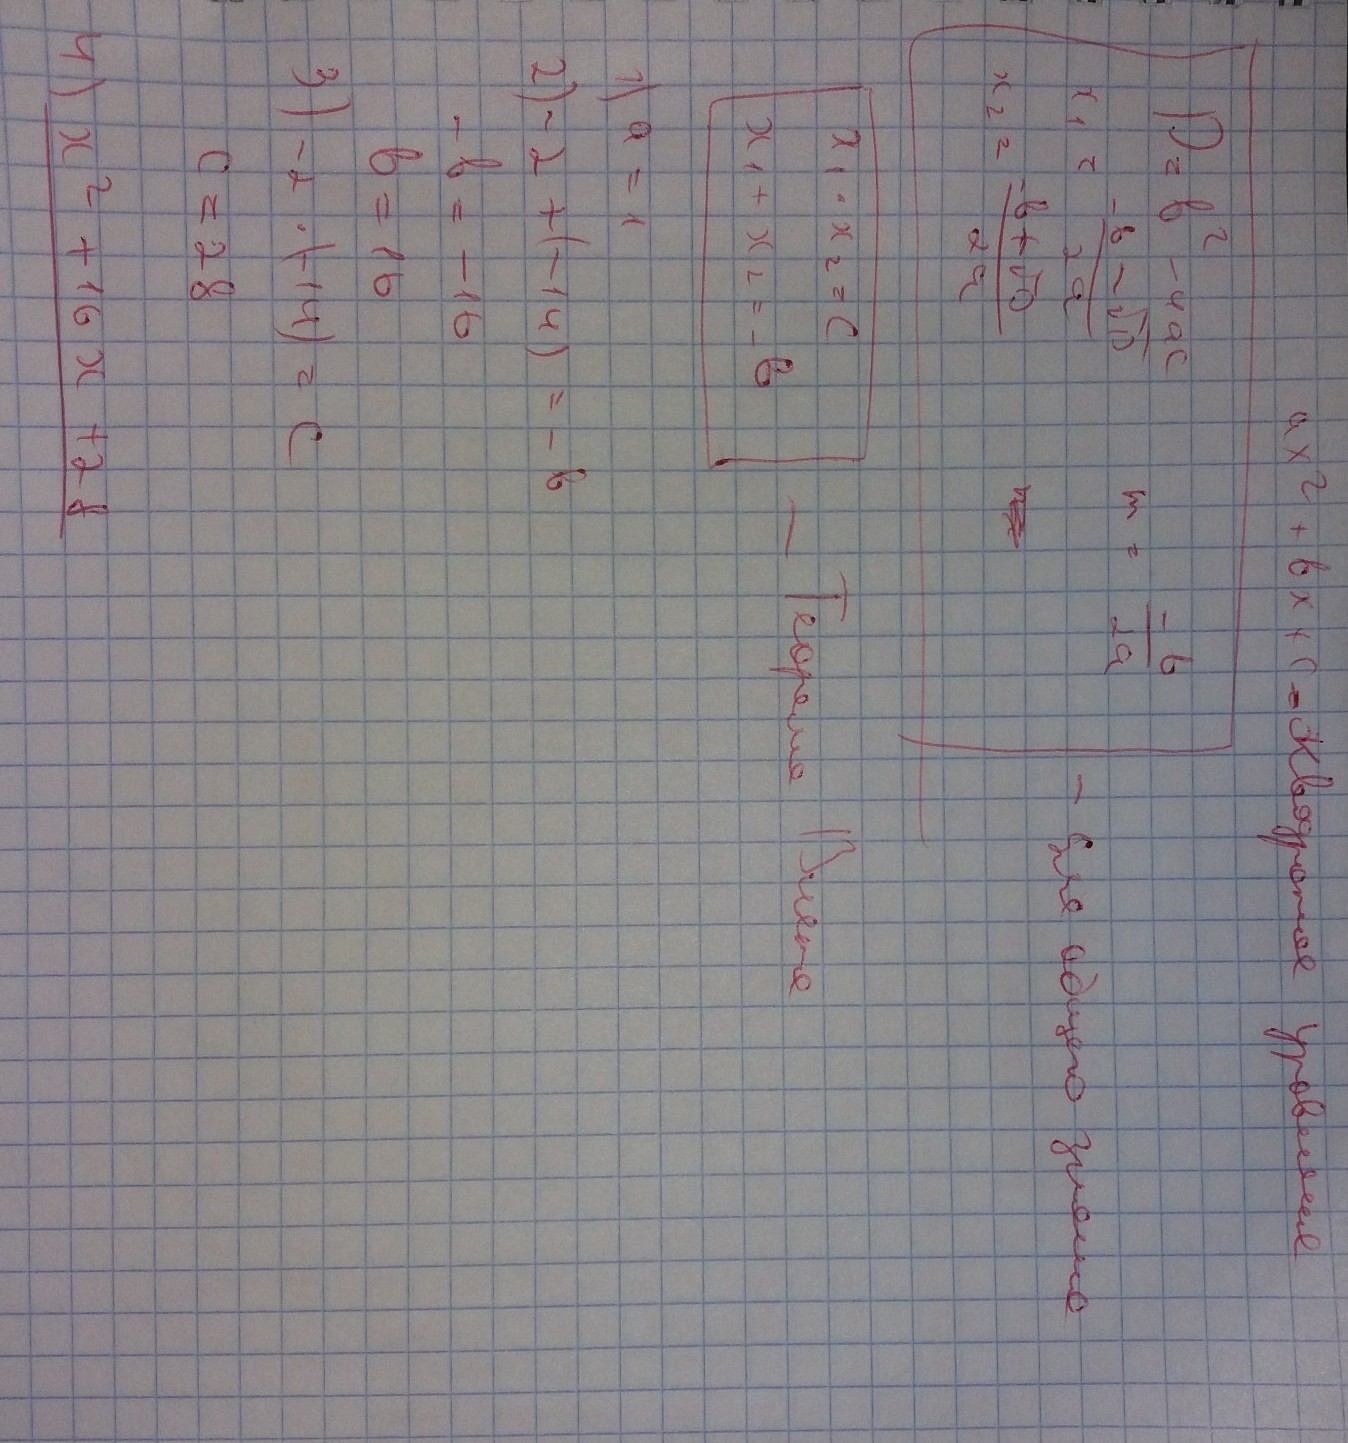 ax² + bx + c - Квадратное уровнение
D = b² - 4ac
x₁ = (-b - √D) / 2a
m = -b / 2a
x₂ = (-b + √D) / 2a
- Для общего знание
x₁ · x₂ = C
x₁ + x₂ = -b
- Теорема Виета
1) a = 1
2) -2 + (-14) = -b
-b = -16
b = 16
3) -2 · (-14) = C
C = 28
4) x² + 16x + 28